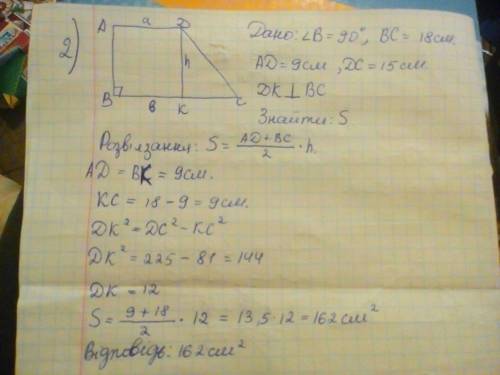 2)
A a D
h
B в K C
Дано: ∠B = 90°, BC = 18см.
AD = 9см, DC = 15см
DK ⊥ BC
Знайти: S
Розв'язання: S = (AD + BC)/2 · h.
AD = BK = 9см.
KC = 18 - 9 = 9см.
DK² = DC² - KC²
DK² = 225 - 81 = 144
DK = 12
S = (9 + 18)/2 · 12 = 13,5 · 12 = 162 см²
Відповідь: 162 см²